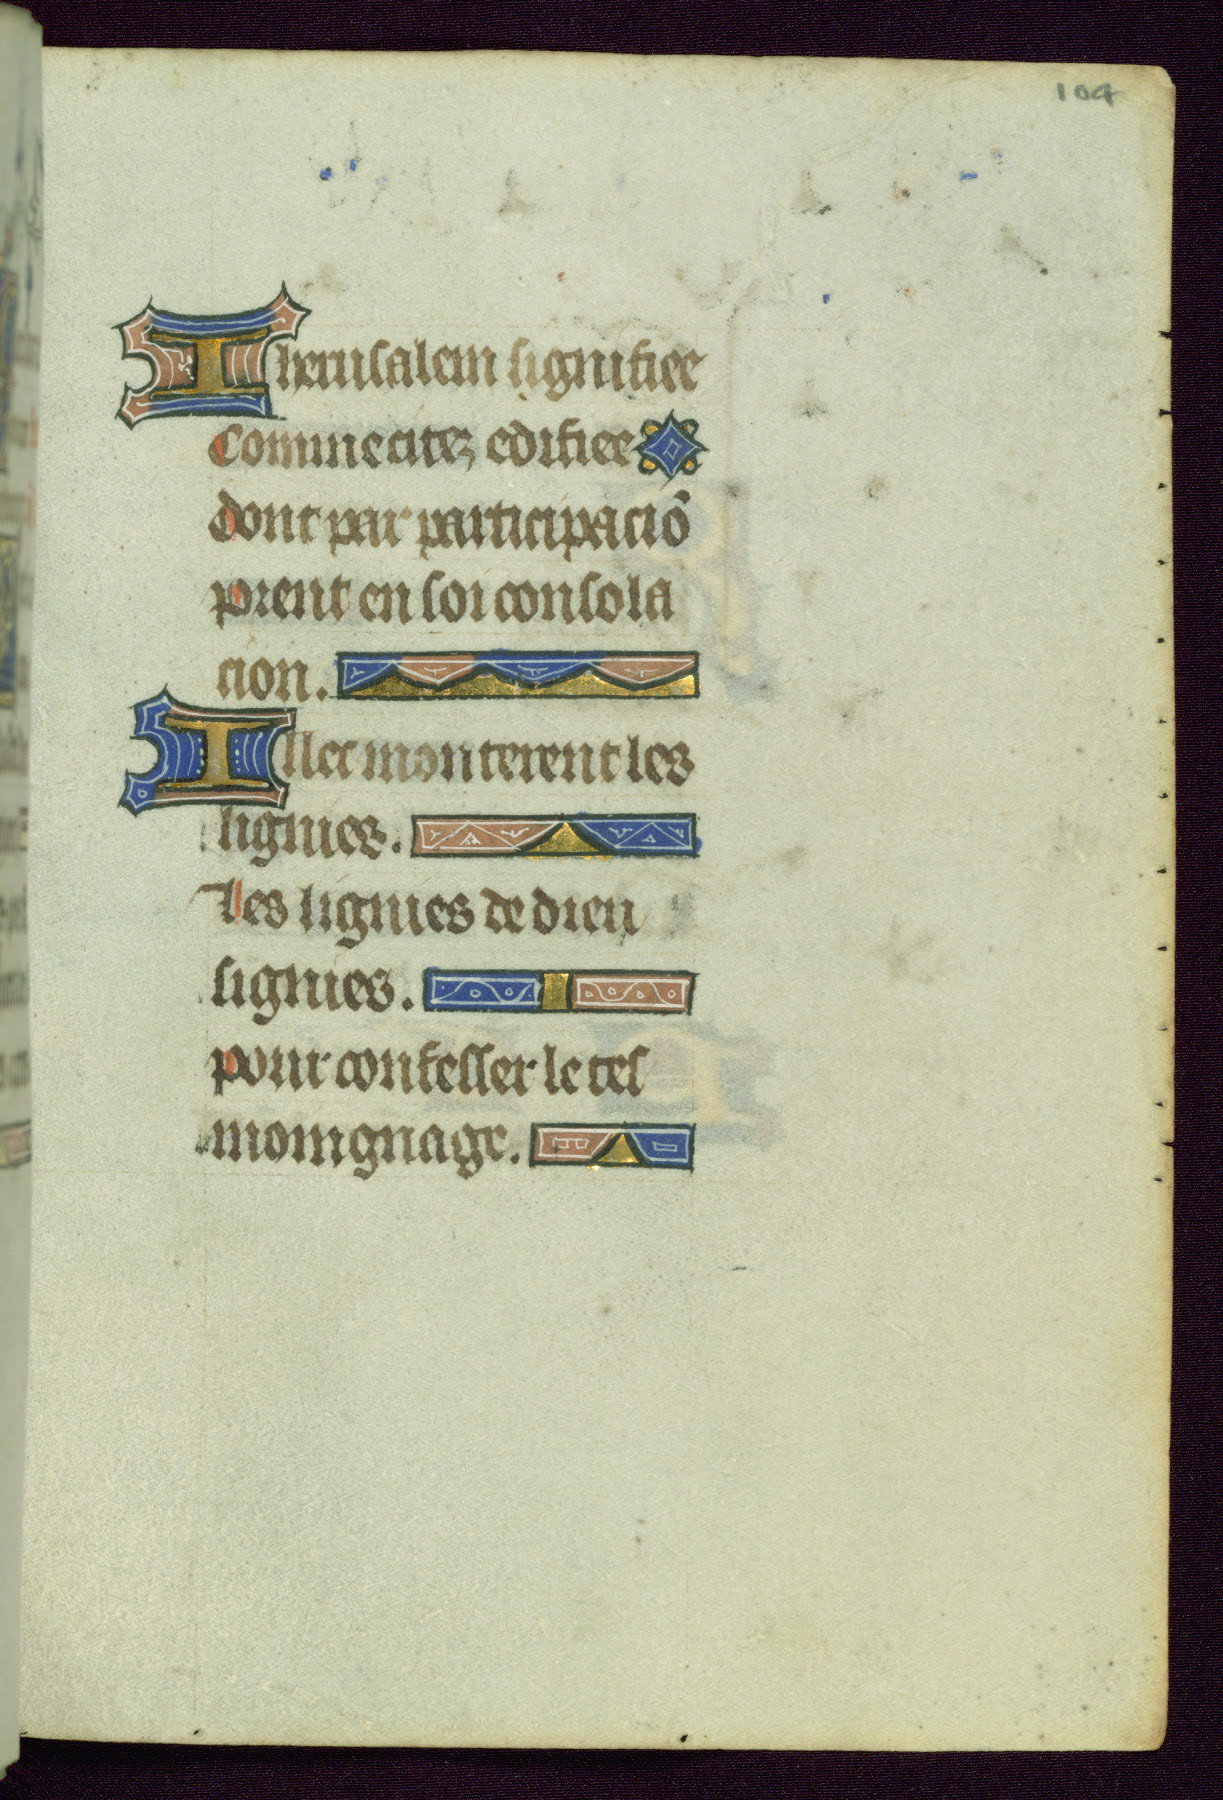 104
Iherusalem signifiee
comme citez edifiee
dont par participaciõ
prent en soi consola
cion.
Illec monterent les
lignies.
Les lignies de dieu
lignies.
pour confesser le tes
moingnage.